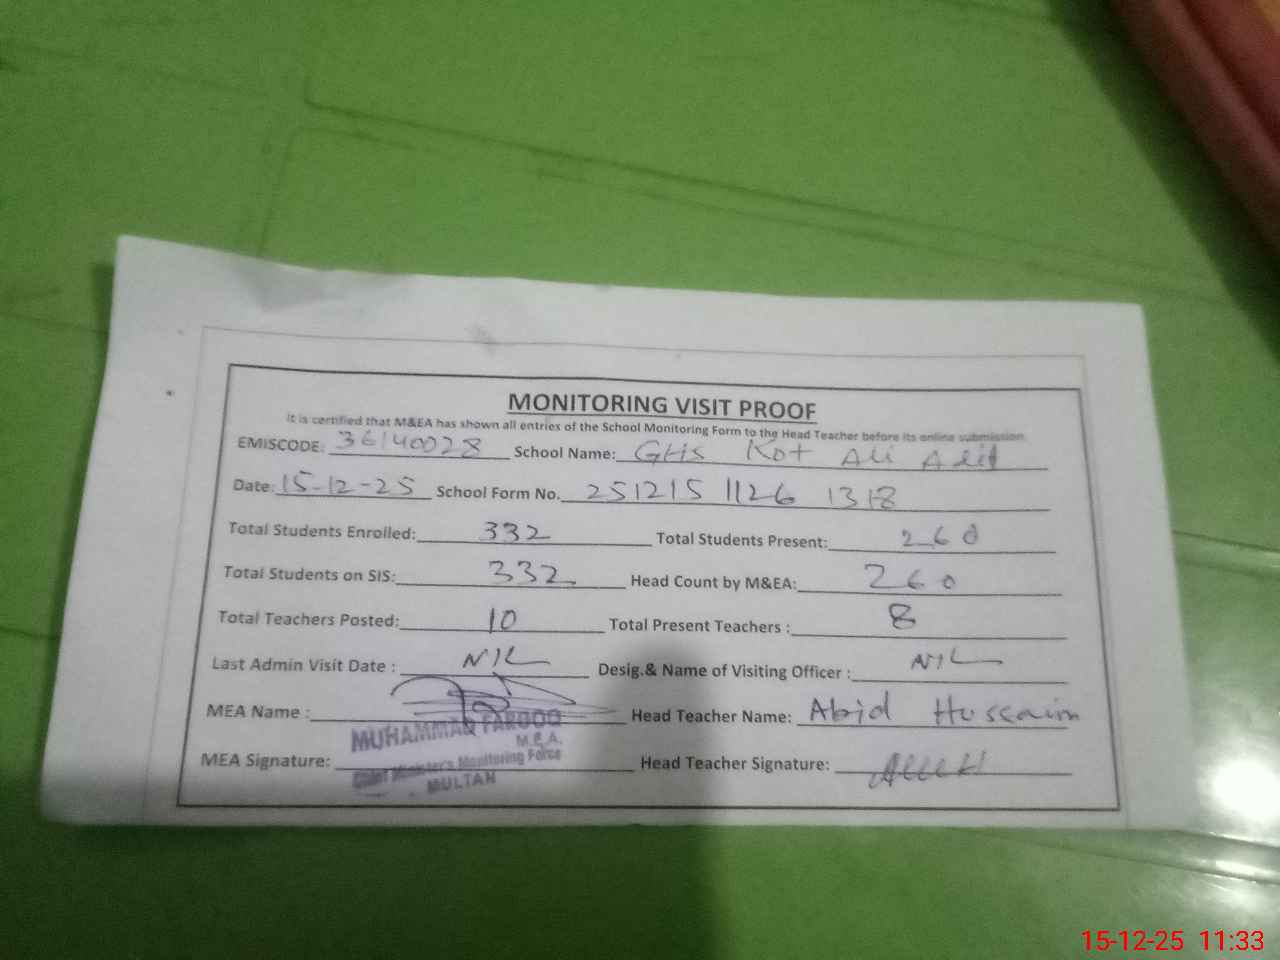 MONITORING VISIT PROOF
It is certified that M&EA has shown all entries of the School Monitoring Form to the Head Teacher before its online submission
EMISCODE: 36140028 School Name: GHS Kot Ali Adil
Date: 15-12-25 School Form No. 251215 1126 1318
Total Students Enrolled: 332 Total Students Present: 260
Total Students on SIS: 332 Head Count by M&EA: 260
Total Teachers Posted: 10 Total Present Teachers : 8
Last Admin Visit Date : NIL Desig.& Name of Visiting Officer : NIL
MEA Name : Head Teacher Name: Abid Hussain
MUHAMMAD FAROOQ
M.E.A.
MEA Signature: Head Teacher Signature:
Chief Minister's Monitoring Force
MULTAN
15-12-25 11:33